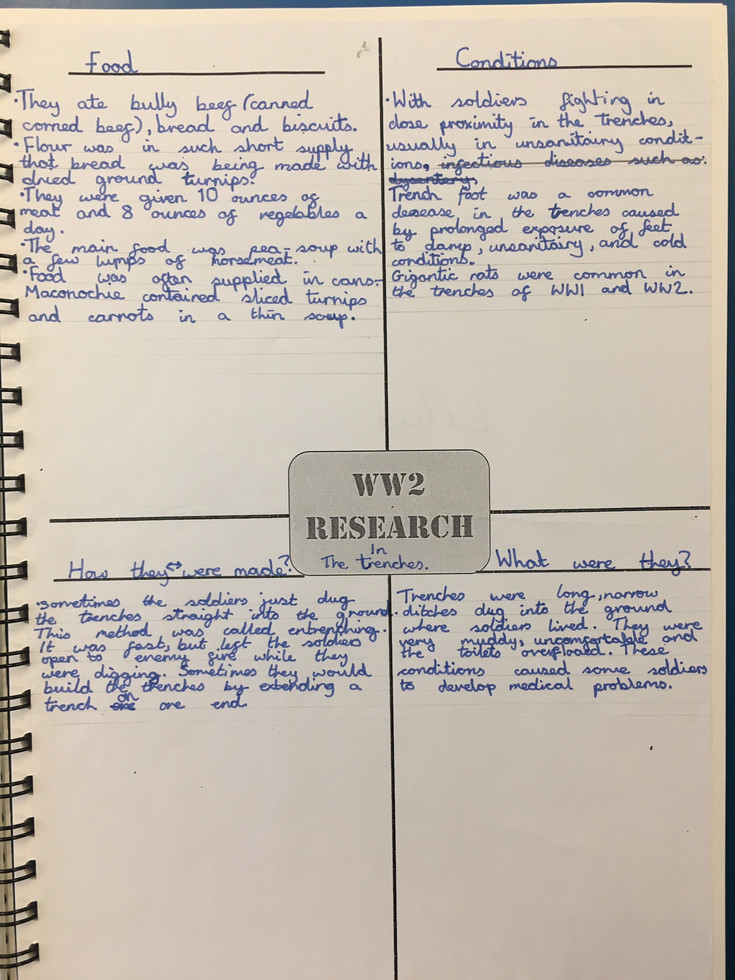 Food
·They ate bully beef (canned
corned beef), bread and biscuits.
·Flour was in such short supply
that bread was being made with
dried ground turnips.
·They were given 10 ounces of
meat and 8 ounces of vegetables a
day.
·The main food was pea-soup with
a few lumps of horsemeat.
·Food was often supplied in cans.
Maconochie contained sliced turnips
and carrots in a thin soup.
Conditions
·With soldiers fighting in
close proximity in the trenches,
usually in unsanitairy condit-
ions, infectious diseases such as
dysentery
Trench foot was a common
desease in the trenches caused
by prolonged exposure of feet
to damp, unsanitairy, and cold
conditions.
Gigantic rats were common in
the trenches of WW1 and WW2.
WW2
RESEARCH
In
The trenches.
How they were made?
·Sometimes the soldiers just dug
the trenches straight into the ground.
This method was called entrenching.
It was fast, but left the soldiers
open to enemy fire while they
were digging. Sometimes they would
build the trenches by extending a
trench on one end
What were they?
Trenches were long, narrow
ditches dug into the ground
where soldiers lived. They were
very muddy, uncomfortable and
the toilets overfloaed. These
conditions caused some soldiers
to develop medical problems.